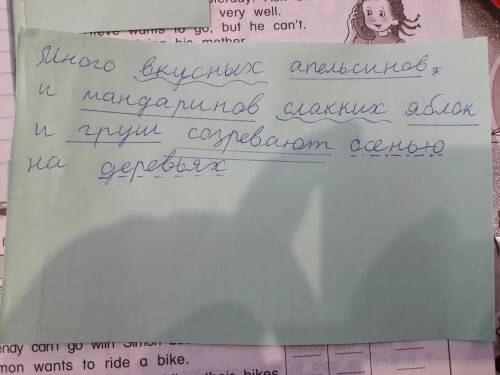 very well.
wants to go, but he can't.
his mother
Много вкусных апельсинов,
и мандаринов слаких яблок
и груш созревают осенью
на деревьях
endy can't go with Simon
mon wants to ride a bike.
their bikes